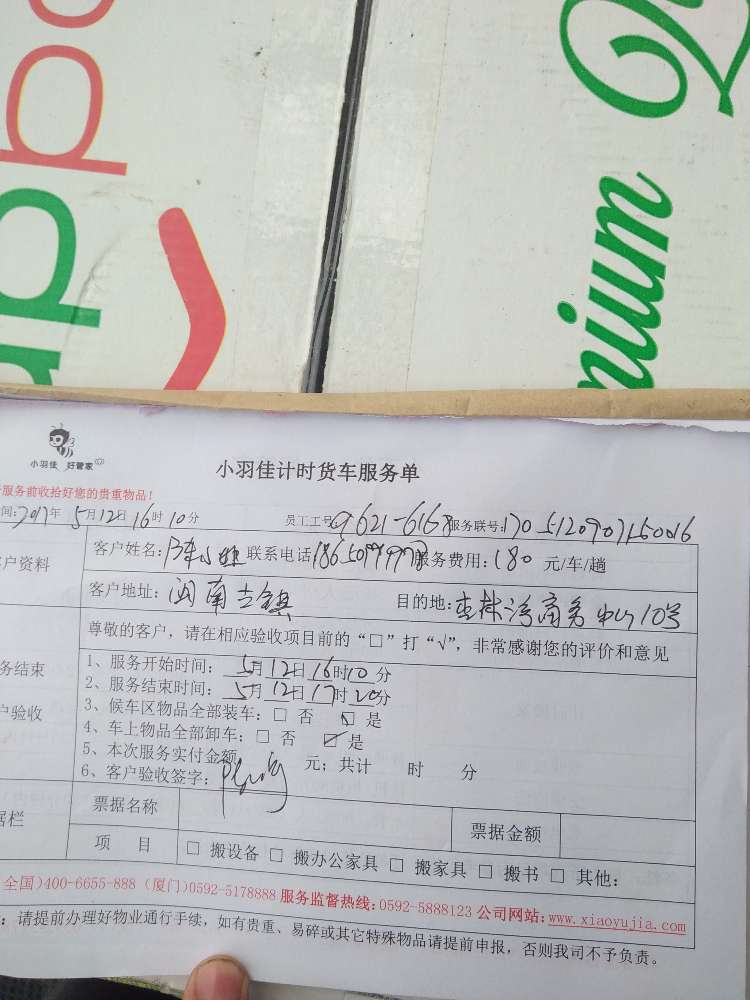 nium Q
小羽佳 好管家
小羽佳计时货车服务单
服务前收拾好您的贵重物品!
间:2017年5月12日16时10分 员工工号9621-6168服务联号:1705120907150016
户资料
客户姓名:陈小姐 联系电话 服务费用:180 元/车/趟
客户地址:闽南古镇 目的地:杏林湾商务中心10号
尊敬的客户,请在相应验收项目前的“□”打“√”,非常感谢您的评价和意见
务结束
户验收
1、服务开始时间:5月12日16时10分
2、服务结束时间:5月12日17时20分
3、候车区物品全部装车:□ 否 □ 是
4、车上物品全部卸车:□ 否 □ 是
5、本次服务实付金额 元;共计 时 分
6、客户验收签字:
据栏
票据名称 票据金额
项 目 □ 搬设备 □ 搬办公家具 □ 搬家具 □ 搬书 □ 其他:
全国)400-6655-888 (厦门)0592-5178888 服务监督热线:0592-5888123 公司网站:www.xiaoyujia.com
:请提前办理好物业通行手续,如有贵重、易碎或其它特殊物品请提前申报,否则我司不予负责。